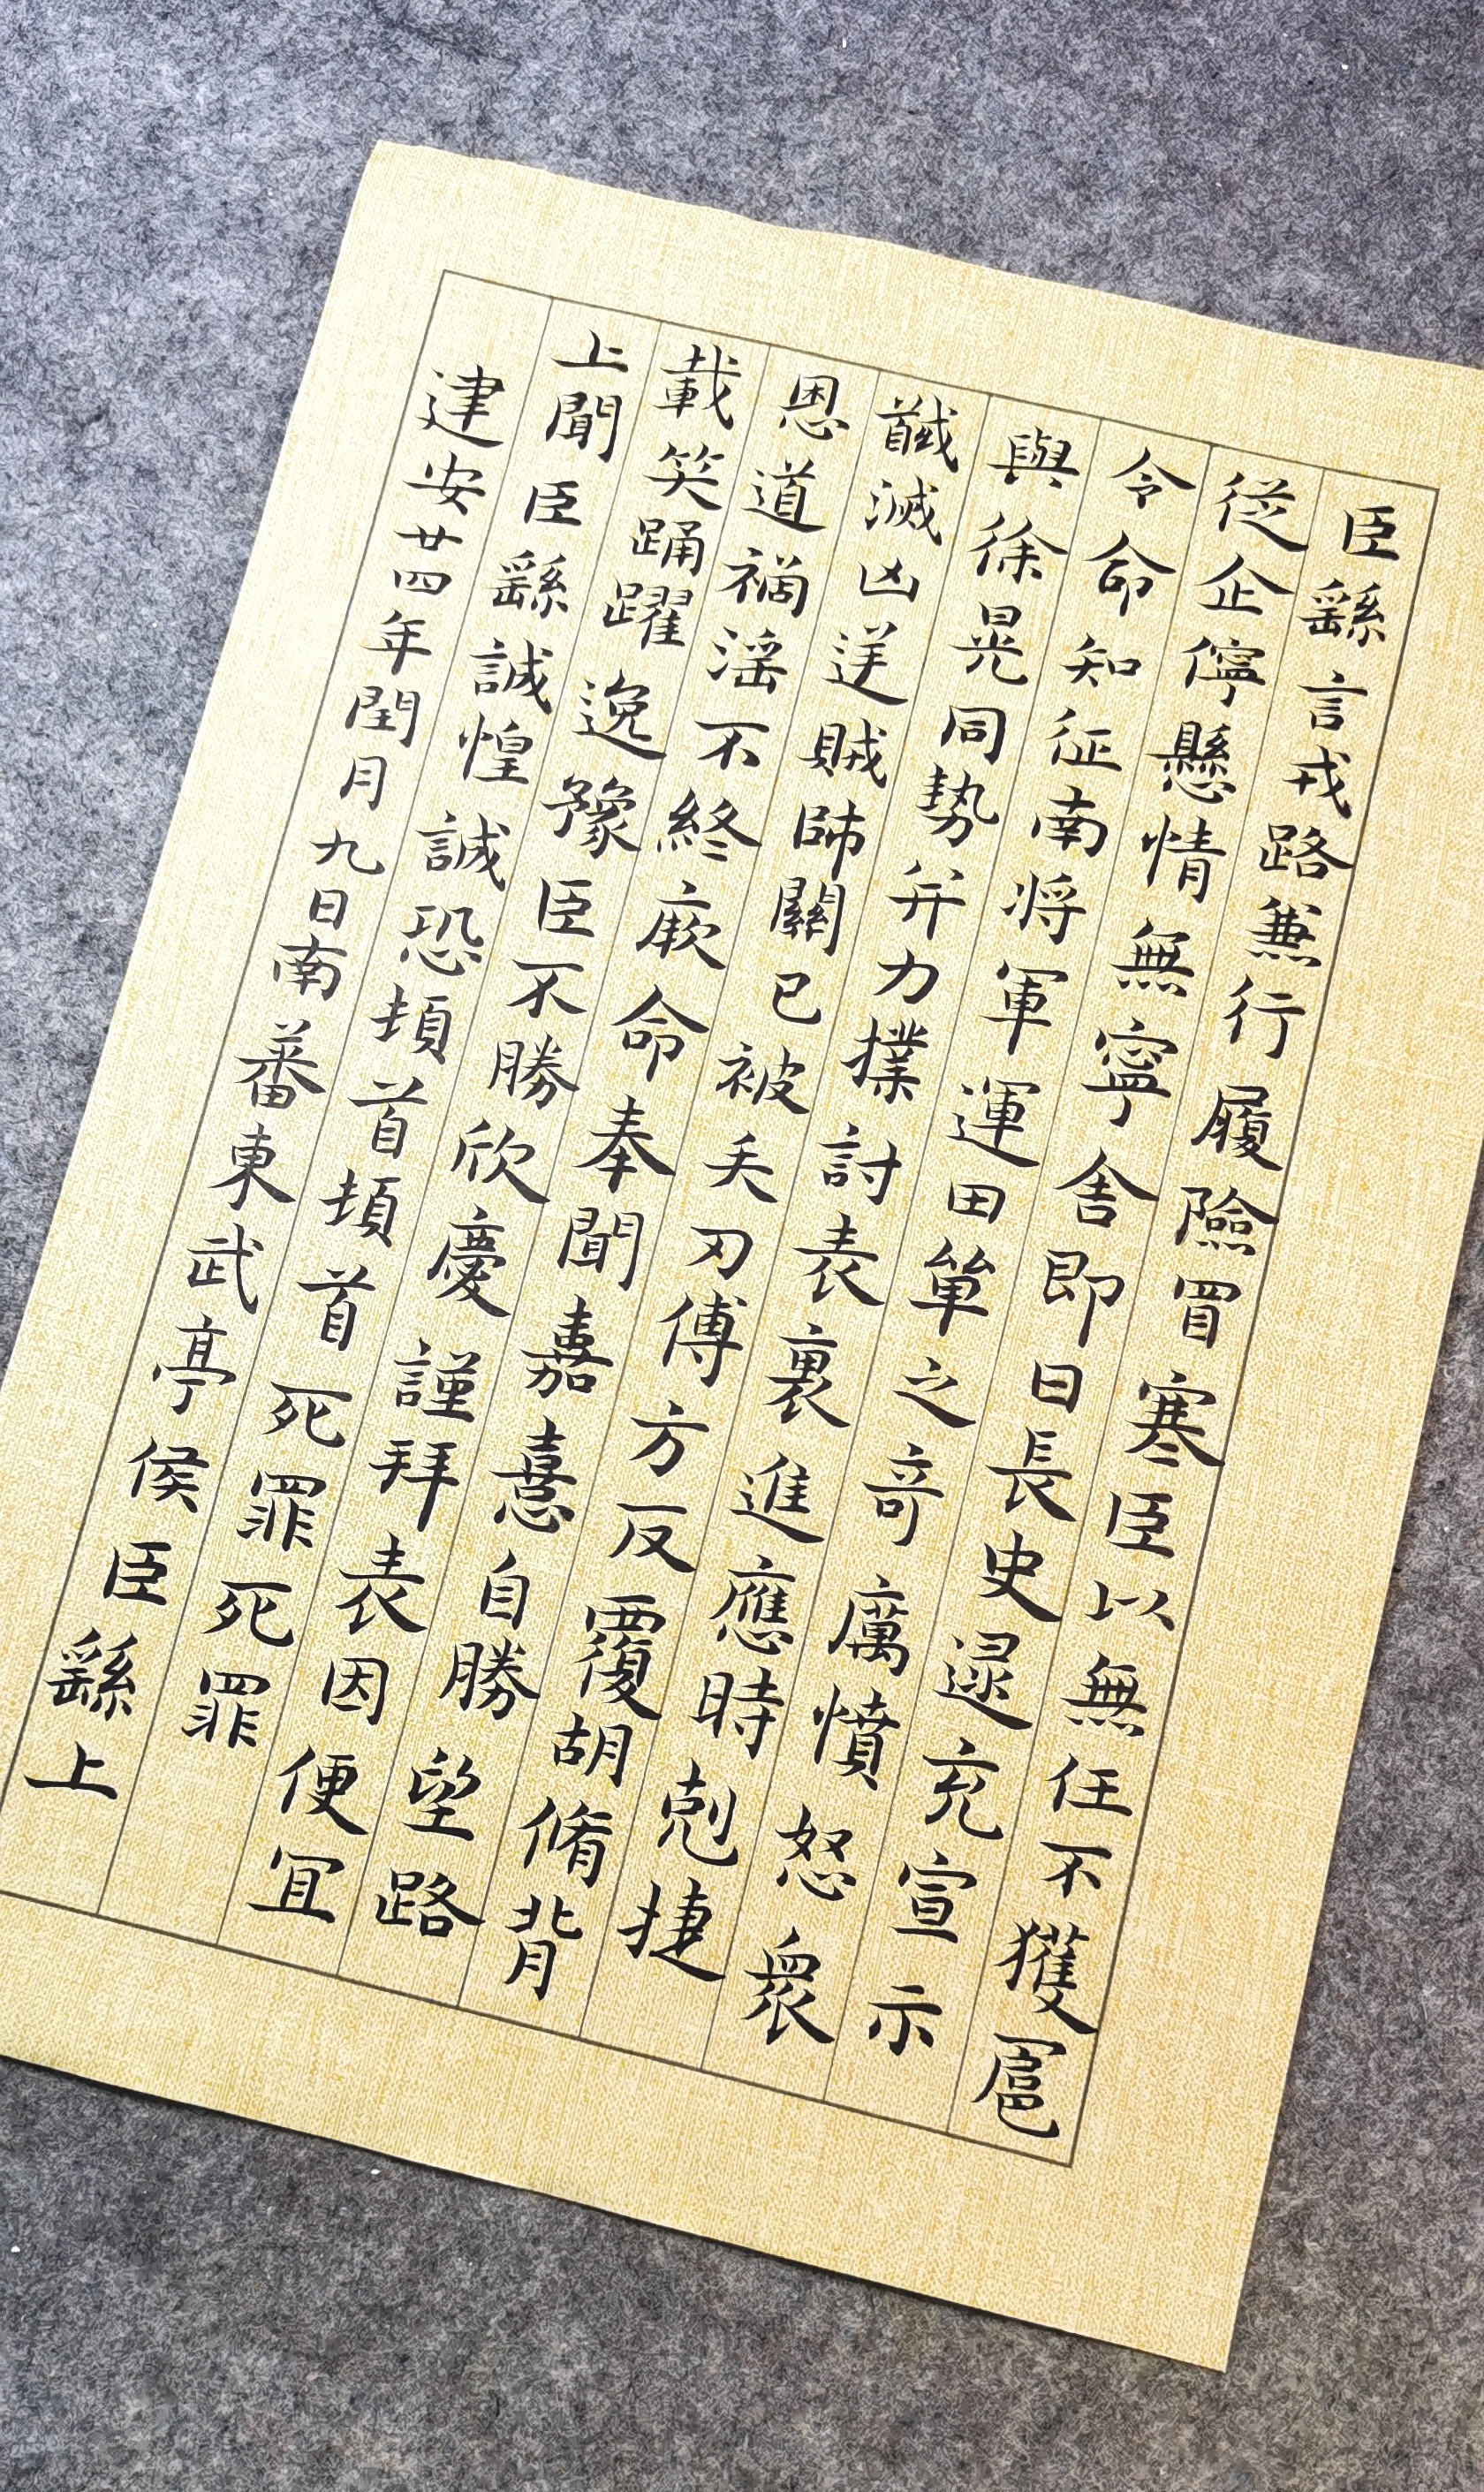 臣繇言戎路兼行履險冒寒臣以無任不獲扈
從企儜懸情無寧舍即日長史逯充宣示
令命知征南將軍運田單之奇厲憤怒衆
與徐晃同勢并力撲討表裏進應時剋捷
馘滅凶逆賊帥關已被矢刃傅方反覆胡脩背
恩道禍淫不終厥命奉聞嘉憙自勝望路
載笑踊躍逸豫臣不勝欣慶謹拜表因便宜
上聞臣繇誠惶誠恐頓首頓首死罪死罪
建安廿四年閏月九日南蕃東武亭侯臣繇上